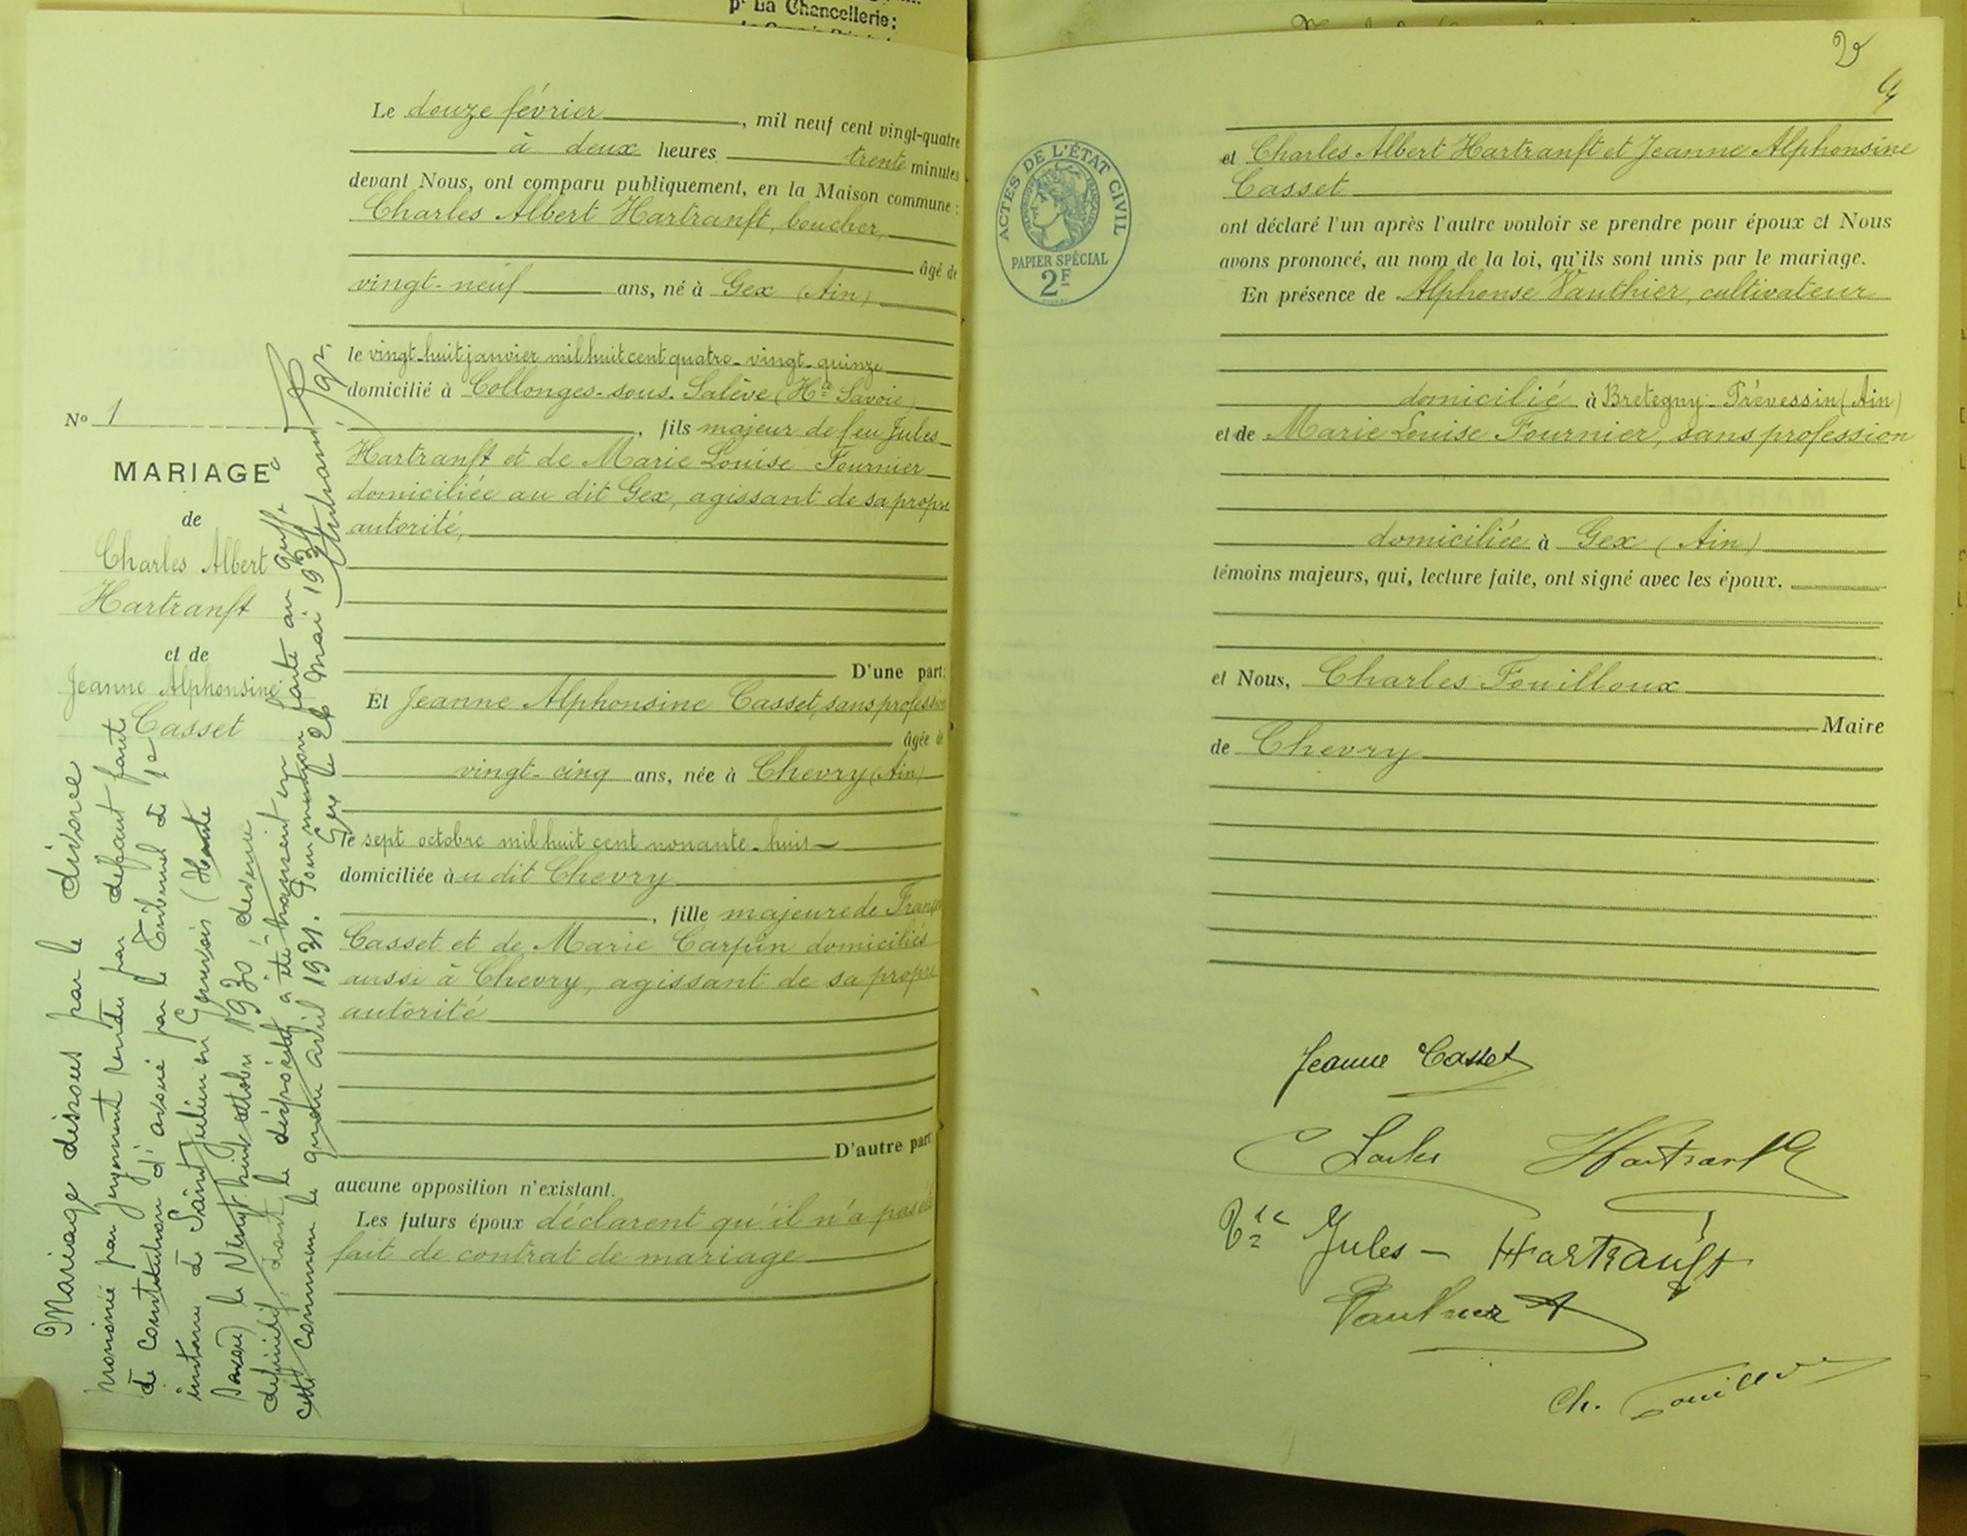 pr La Chancellerie:
Le douze février, mil neuf cent vingt-quatre
à deux heures trente minutes
devant Nous, ont comparu publiquement, en la Maison commune :
Charles Albert Hartranft, boucher,
âgé de
vingt-neuf ans, né à Gex (Ain)
le vingt-huit janvier mil huit cent quatre-vingt-quinze
domicilié à Collonges-sous-Salève (Hte Savoie)
, fils majeur de feu Jules
Hartranft et de Marie Louise Fournier
domiciliée au dit Gex, agissant de sa propre
autorité,
D'une part:
Et Jeanne Alphonsine Casset, sans profession
âgée de
vingt-cinq ans, née à Chevry (Ain)
le sept octobre mil huit cent nonante-huit
domiciliée au dit Chevry
, fille majeure de François
Casset et de Marie Carpin domiciliés
aussi à Chevry, agissant de sa propre
autorité
D'autre part
aucune opposition n'existant.
Les futurs époux déclarent qu'il n'a pas été
fait de contrat de mariage
No 1
MARIAGE
de
Charles Albert
Hartranft
et de
Jeanne Alphonsine
Casset
Mariage dissous par le divorce
prononcé par jugement rendu par défaut faute
de constitution d'avoué par le Tribunal de 1e
instance de Saint Julien en Genevois (Haute
Savoie) le Vingt huit octobre 1930, devenu
définitif, dont le dispositif a été transcrit en
cette commune le quatre avril 1931. Pour mention faite au greffe
Gex le 26 Mai 1931
2
et Charles Albert Hartranft et Jeanne Alphonsine
Casset
ont déclaré l'un après l'autre vouloir se prendre pour époux et Nous
avons prononcé, au nom de la loi, qu'ils sont unis par le mariage.
En présence de Alphonse Vauthier, cultivateur
domicilié à Bretegny-Prévessin (Ain)
et de Marie Louise Fournier, sans profession
domiciliée à Gex (Ain)
témoins majeurs, qui, lecture faite, ont signé avec les époux.
et Nous, Charles Fouilloux
Maire
de Chevry
ACTES DE L'ÉTAT CIVIL
PAPIER SPÉCIAL
2F
Jeanne Casset
Charles Hartranft
Vve Jules - Hartranft
Vauthier A
Ch. Fouilloux